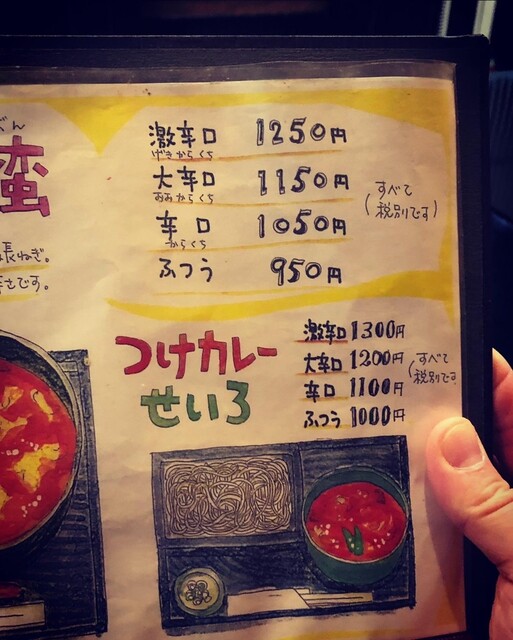 蛮
激辛口 1250円
げきからくち
大辛口 1150円
おおからくち
辛口 1050円
からくち
ふつう 950円
すべて
(税別です)
長ねぎ。
さです。
つけカレー
せいろ
激辛口 1300円
大辛口 1200円
辛口 1100円
ふつう 1000円
(すべて
税別です